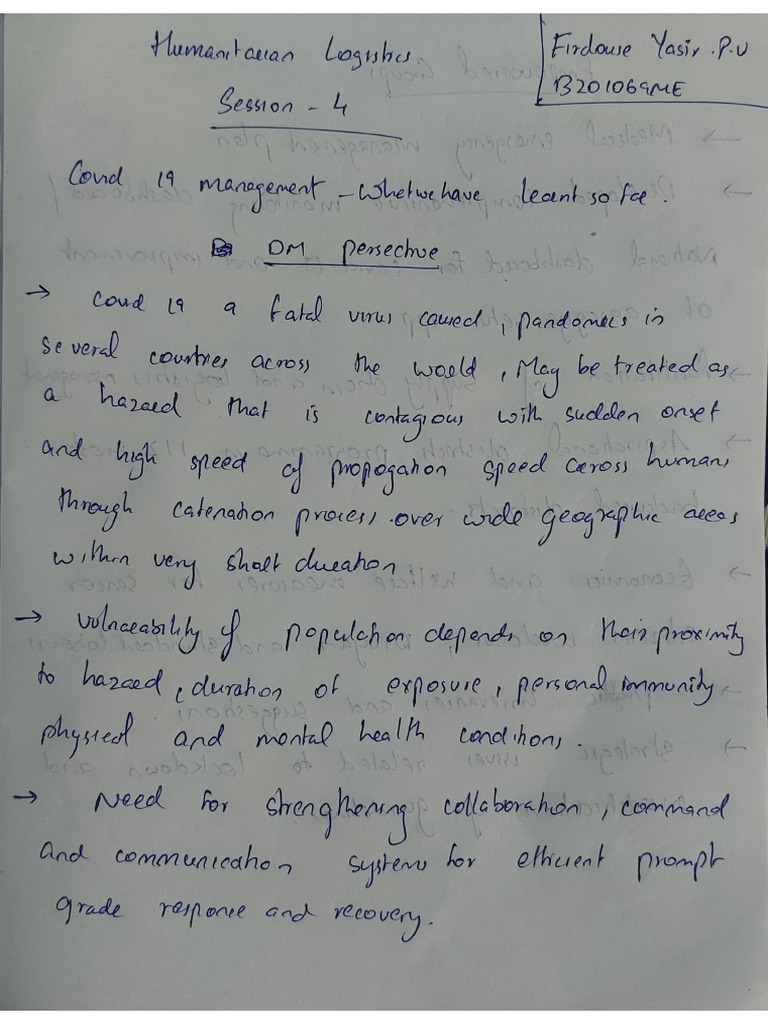 Humanitarian Logistics
Firdouse Yasir.P.U
B201069ME
Session - 4
Covid 19 management - What we have learnt so far.
DM Persective
→ Covid 19 a fatal virus caused, pandomics in
several countries across the world, May be treated as
a hazard that is contagious with sudden onset
and high speed of propogation speed across humans
through catenation process over wide geographic areas
within very short duration
→ Vulnerability of population depends on their proximity
to hazard, duration of exposure, personal immunity
physical and mental health conditions.
→ Need for strengthening collaboration, command
and communication systems for efficient prompt
grade response and recovery.